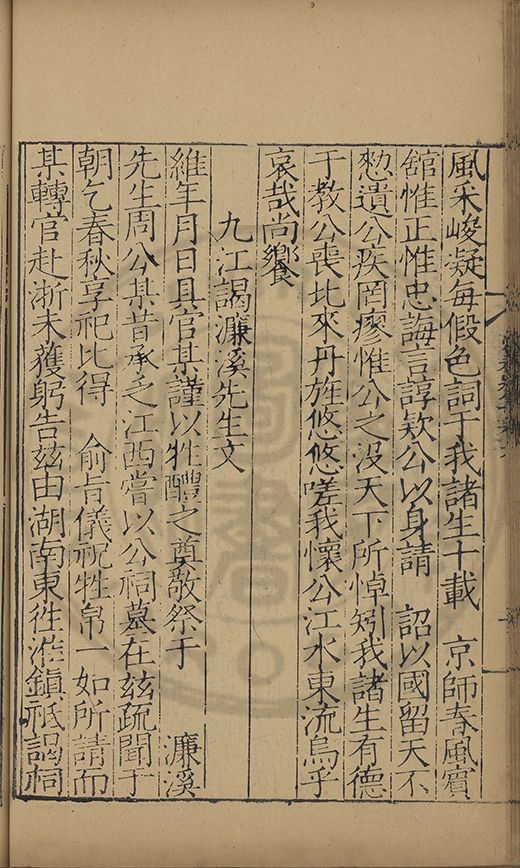 風采峻凝每假色詞于我諸生十載　京師春風賓
舘惟正惟忠誨言諄欵公以身請　詔以國留天不
憖遺公疾罔瘳惟公之沒天下所悼矧我諸生有德
于教公喪比來丹旌悠悠嗟我懷公江水東流烏乎
哀哉尚饗
九江謁濂溪先生文
維年月日具官某謹以牲醴之奠敬祭于　濂溪
先生周公某昔承乏江西嘗以公祠墓在兹疏聞于
朝乞春秋享祀比得　俞旨儀祝牲帛一如所請而
某轉官赴浙未獲躬告兹由湖南東徃淮鎮祗謁祠